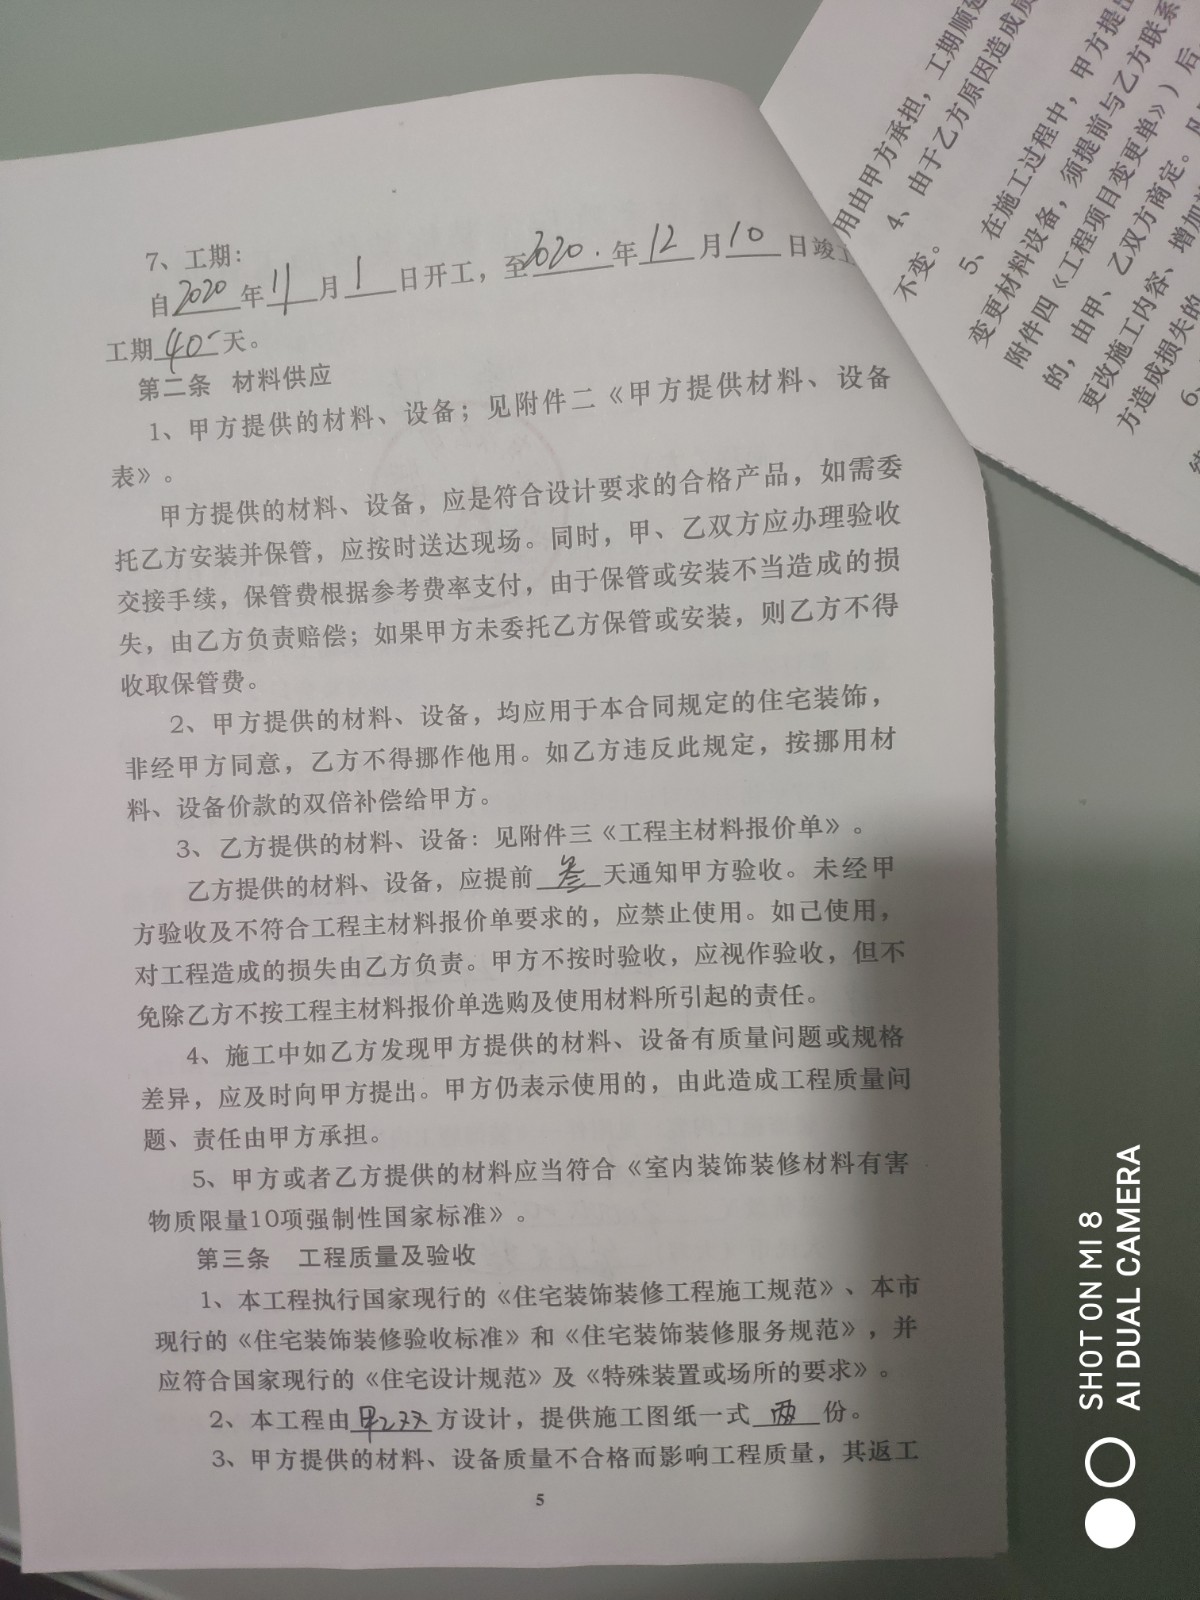 7、工期：
自2020年11月1日开工，至2020.年12月10日竣工
工期40天。
第二条 材料供应
1、甲方提供的材料、设备；见附件二《甲方提供材料、设备
表》。
甲方提供的材料、设备，应是符合设计要求的合格产品，如需委
托乙方安装并保管，应按时送达现场。同时，甲、乙双方应办理验收
交接手续，保管费根据参考费率支付，由于保管或安装不当造成的损
失，由乙方负责赔偿；如果甲方未委托乙方保管或安装，则乙方不得
收取保管费。
2、甲方提供的材料、设备，均应用于本合同规定的住宅装饰，
非经甲方同意，乙方不得挪作他用。如乙方违反此规定，按挪用材
料、设备价款的双倍补偿给甲方。
3、乙方提供的材料、设备：见附件三《工程主材料报价单》。
乙方提供的材料、设备，应提前叁天通知甲方验收。未经甲
方验收及不符合工程主材料报价单要求的，应禁止使用。如己使用，
对工程造成的损失由乙方负责。甲方不按时验收，应视作验收，但不
免除乙方不按工程主材料报价单选购及使用材料所引起的责任。
4、施工中如乙方发现甲方提供的材料、设备有质量问题或规格
差异，应及时向甲方提出。甲方仍表示使用的，由此造成工程质量问
题、责任由甲方承担。
5、甲方或者乙方提供的材料应当符合《室内装饰装修材料有害
物质限量10项强制性国家标准》。
第三条 工程质量及验收
1、本工程执行国家现行的《住宅装饰装修工程施工规范》、本市
现行的《住宅装饰装修验收标准》和《住宅装饰装修服务规范》，并
应符合国家现行的《住宅设计规范》及《特殊装置或场所的要求》。
2、本工程由甲乙双方设计，提供施工图纸一式两份。
3、甲方提供的材料、设备质量不合格而影响工程质量，其返工
5
用由甲方承担，工期顺延
4、由于乙方原因造成质
不变。
5、在施工过程中，甲方提出
变更材料设备，须提前与乙方联系
附件四《工程项目变更单》）后
的，由甲、乙双方商定。凡
更改施工内容、增加
方造成损失的
6、
SHOT ON MI 8
AI DUAL CAMERA